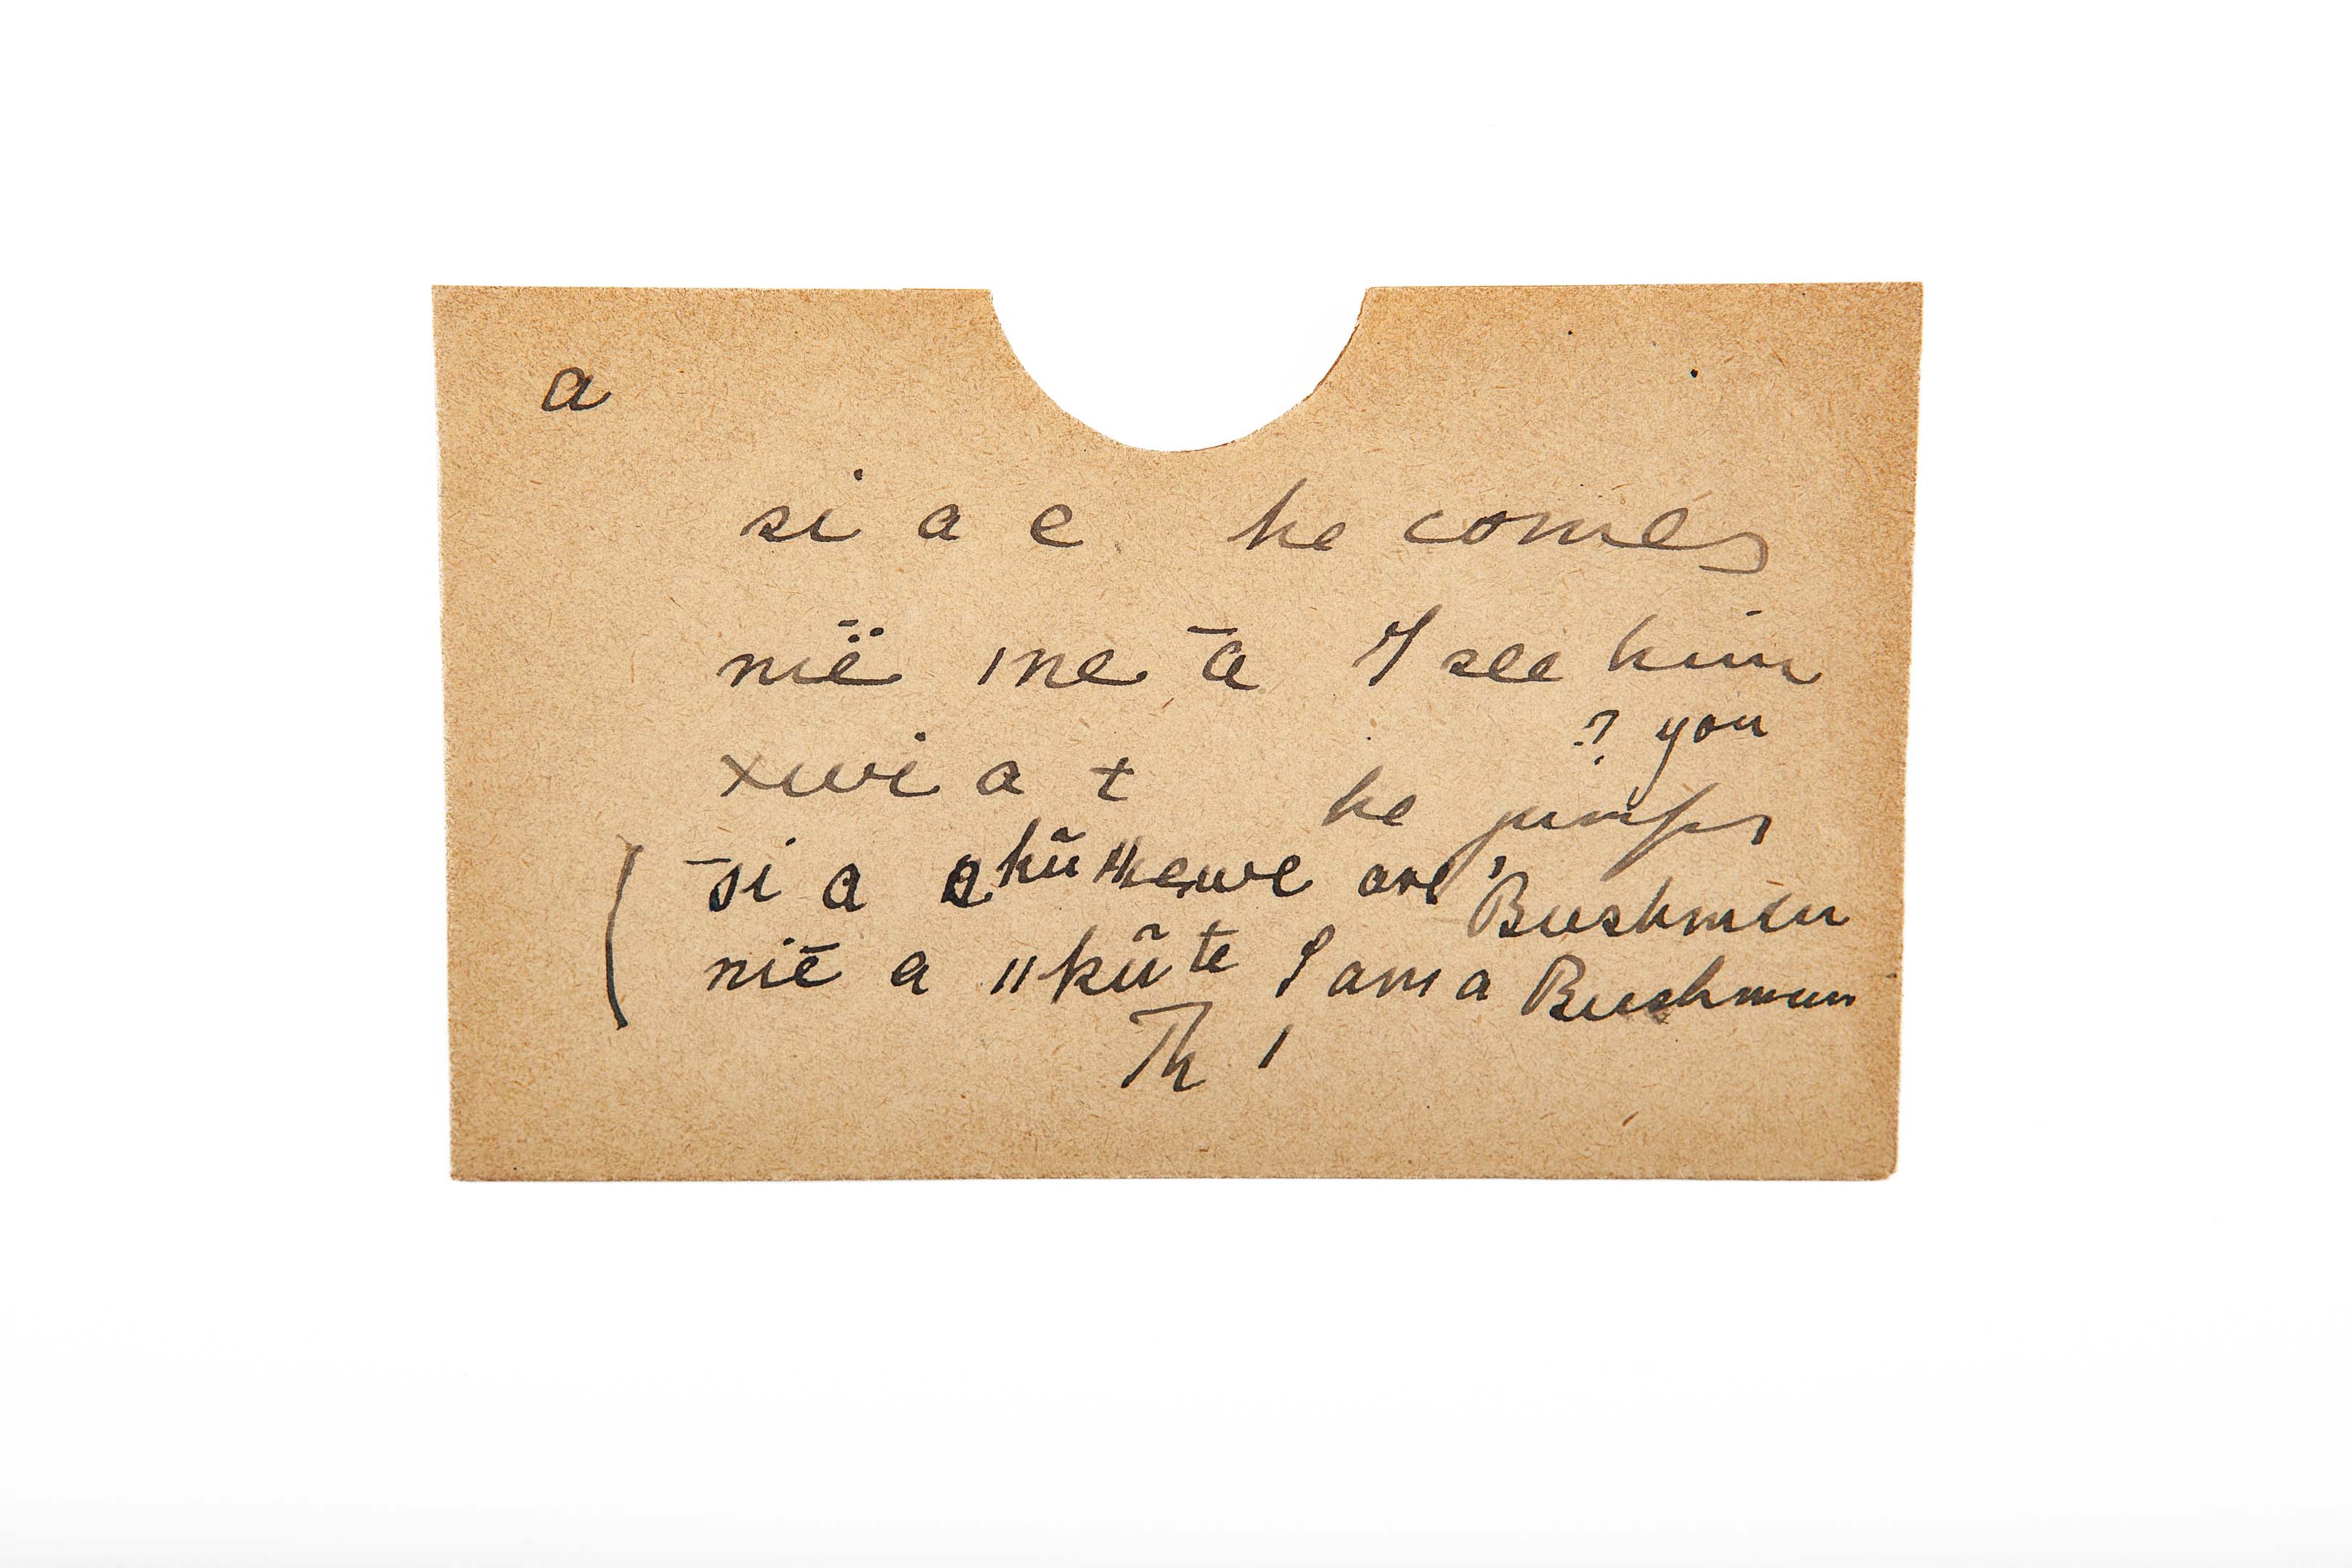 a
si a e he comes
nië̄ ɪne ā I see him
? you
xwi a t he jumps
si a kū we are Bushmen
niē a ǁkũ te I am a Bushman
Th 1